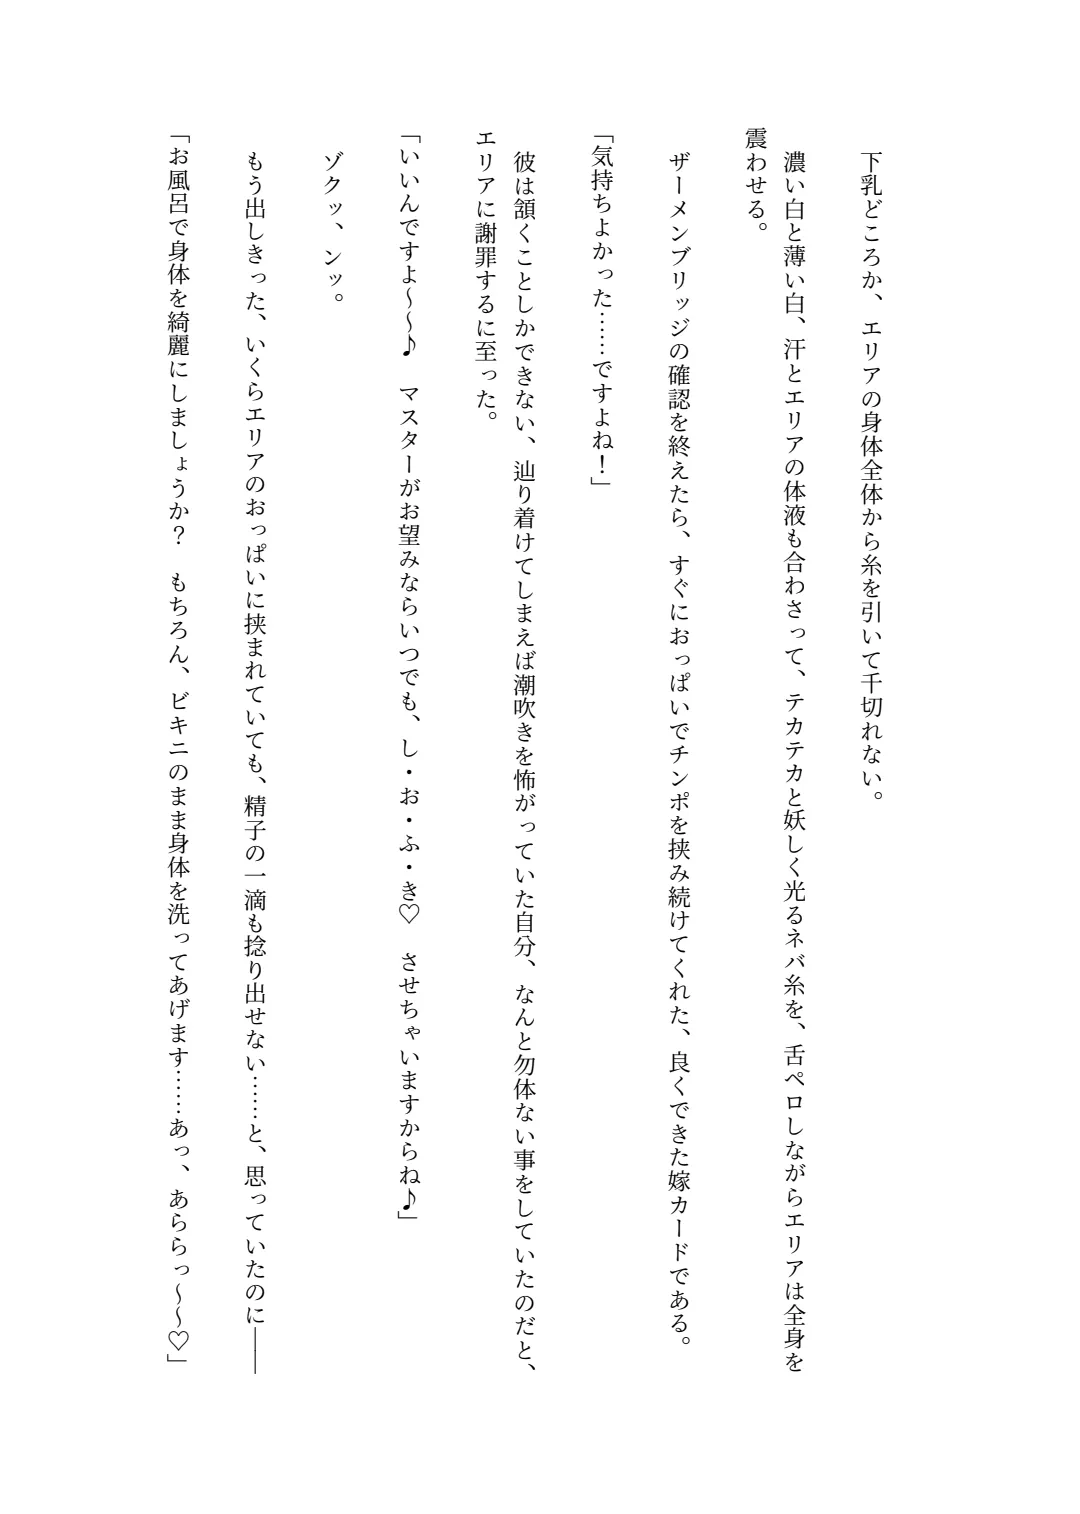 下乳どころか、エリアの身体全体から糸を引いて千切れない。
　濃い白と薄い白、汗とエリアの体液も合わさって、テカテカと妖しく光るネバ糸を、舌ペロしながらエリアは全身を
震わせる。
　ザーメンブリッジの確認を終えたら、すぐにおっぱいでチンポを挟み続けてくれた、良くできた嫁カードである。
「気持ちよかった……ですよね！」
　彼は頷くことしかできない、辿り着けてしまえば潮吹きを怖がっていた自分、なんと勿体ない事をしていたのだと、
エリアに謝罪するに至った。
「いいんですよ～～♪　マスターがお望みならいつでも、し・お・ふ・き♡　させちゃいますからね♪」
　ゾクッ、ンッ。
　もう出しきった、いくらエリアのおっぱいに挟まれていても、精子の一滴も捻り出せない……と、思っていたのに――
「お風呂で身体を綺麗にしましょうか？　もちろん、ビキニのまま身体を洗ってあげます……あっ、あららっ～～♡」